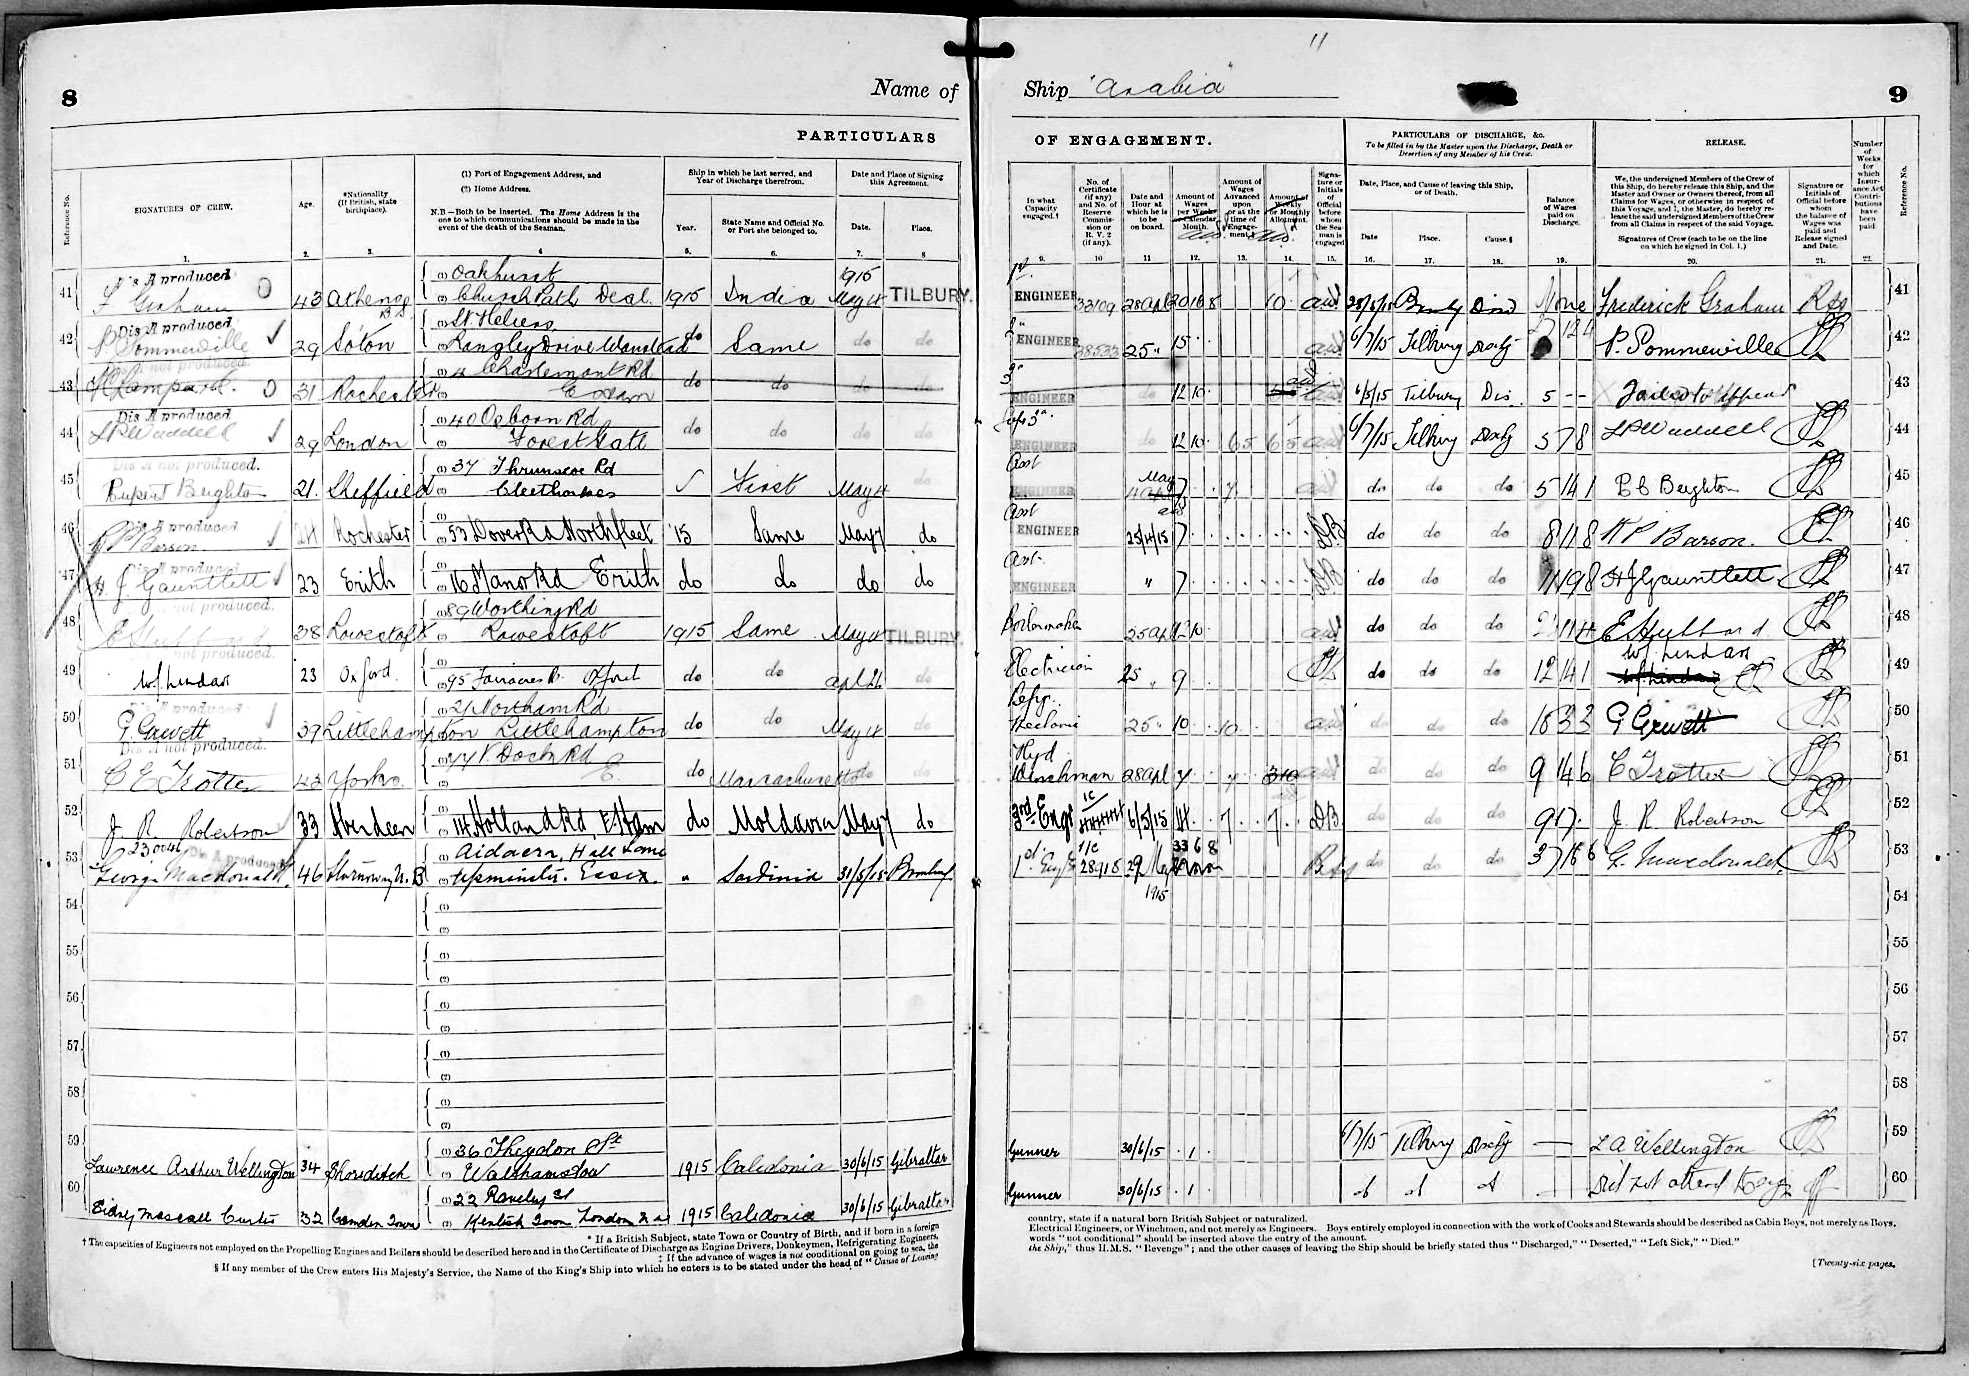 11
8
Name of
Ship "Arabia"
9
PARTICULARS
OF ENGAGEMENT.
PARTICULARS OF DISCHARGE, &c.
To be filled in by the Master upon the Discharge, Death or Desertion of any Member of his Crew.
RELEASE.
Number of Weeks for which Insurance Act Contributions have been paid
Reference No.
SIGNATURES OF CREW.
Age.
*Nationality (If British, state birthplace).
(1) Port of Engagement Address, and
(2) Home Address.
N.B.—Both to be inserted. The Home Address is the one to which communications should be made in the event of the death of the Seaman.
Ship in which he last served, and Year of Discharge therefrom.
Year.
State Name and Official No. or Port she belonged to.
Date and Place of Signing this Agreement.
Date.
Place.
In what Capacity engaged.†
No. of Certificate (if any) and No. of Reserve Commission or R. V. 2 (if any).
Date and Hour at which he is to be on board.
Amount of Wages per Week or Calendar Month.
Amount of Wages Advanced upon or at the time of Engagement.‡
Amount of Weekly or Monthly Allotment.
Signature or Initials of Official before whom the Seaman is engaged
Date, Place, and Cause of leaving this Ship, or of Death.
Date
Place.
Cause.§
Balance of Wages paid on Discharge.
We, the undersigned Members of the Crew of this Ship, do hereby release this Ship, and the Master and Owner or Owners thereof, from all Claims for Wages, or otherwise in respect of this Voyage, and I, the Master, do hereby release the said undersigned Members of the Crew from all Claims in respect of the said Voyage.
Signatures of Crew (each to be on the line on which he signed in Col. 1.)
Signature or Initials of Official before whom the balance of Wages was paid and Release signed and Date.
Reference No.
1. 2. 3. 4. 5. 6. 7. 8 9. 10 11 12. 13. 14. 15. 16. 17. 18. 19. 20. 21. 22.
41 Dis A produced F Graham 43 Athens (1) Oakhurst (2) Church Path Deal. 1915 India 1915 May 4 TILBURY. 1st ENGINEER 33109 28 Apl 20 16 8 10 28/5/15 Bombay None Frederick Graham 41
42 Dis A produced P Sommerville 29 Soton (1) St Heliers (2) Langley Drive Wanstead do Same do do 2" ENGINEER 38533 25 " 15 6/7/15 Tilbury P. Sommerville 42
43 Dis A not produced. 31 Rochester (1) 4 Charlemont Rd (2) E Ham do do do do 3" ENGINEER do 12 10 6/5/15 Tilbury Dis. 5 -- Failed to Appear 43
44 Dis A produced 29 London (1) 40 Osborn Rd (2) Forest Gate do do do do ENGINEER do 12 10 6 5 6 5 6/7/15 Tilbury 5 7 8 44
45 Dis A not produced. Rupert Beighton 21. Sheffield (1) 37 Thrunscoe Rd (2) Cleethorpes First May 4 do Asst ENGINEER May 7 do do do 5 14 1 Beighton 45
46 Dis A produced Barson 24 Rochester (1) (2) 53 Dover Rd Northfleet '15 Same May 7 do Asst ENGINEER 25/4/15 7 D.B. do do do 8 11 8 Barson. 46
47 Dis A produced H. J. Gauntlett 23 Erith (1) (2) 16 Manor Rd Erith do do do do Asst. ENGINEER " 7 D.B do do do H J Gauntlett 47
48 not produced. E Hubbard 38 Lowestoft (1) 89 Worthing Rd (2) Lowestoft 1915 Same May 4 TILBURY. Boilermaker 25 Apl 12 10 do do do E Hubbard 48
49 not produced. W. Lindars 23 Oxford. (1) (2) 95 Fairacres Rd Oxford do do Apl 26 do Electrician 25 " 9 do do do 12 14 1 W. Lindars 49
50 Dis A produced G Grevett 39 Littlehampton (1) 21 Northam Rd (2) Littlehampton do do May 4 do Refrg. Mechanic 25 " 10 10 do do do 18 3 3 G Grevett 50
51 Dis A not produced. C E Trotter 42 Yorks. (1) 44 V. Dock Rd (2) E. do Massachusetts do do Hyd Winchman 28 Apl 7 do do do 9 14 6 C Trotter 51
52 J. R. Robertson 33 Aberdeen (1) (2) 14 Holland Rd, E. Ham do Moldavia May 7 do 3rd Engr 1c 6/5/15 14 7 7 D.B. do do do 9 17 J. R Robertson 52
53 Dis A produced George Macdonald. 46 Stornoway N.B (1) Hall Lane (2) Upminster. Essex. " Sardinia 31/5/15 Bombay 1st Engr 1/c 28918 29 May 1915 33 6 8 do do do 37 16 6 G. Macdonald. 53
54 (1) (2) 54
55 (1) (2) 55
56 (1) (2) 56
57 (1) (2) 57
58 (1) (2) 58
59 Lawrence Arthur Wellington 34 Shoreditch (1) 36 Theydon St (2) Walthamstow 1915 Caledonia 30/6/15 Gibraltar Gunner 30/6/15 1 6/7/15 Tilbury — L A Wellington 59
60 Sidney Mascall Curtis 32 Camden Town (1) 22 Raveley St (2) Kentish Town London 1915 Caledonia 30/6/15 Gibraltar Gunner 30/6/15 1 do do do Did not attend 60
* If a British Subject, state Town or Country of Birth, and if born in a foreign
country, state if a natural born British Subject or naturalized.
† The capacities of Engineers not employed on the Propelling Engines and Boilers should be described here and in the Certificate of Discharge as Engine Drivers, Donkeymen, Refrigerating Engineers,
Electrical Engineers, or Winchmen, and not merely as Engineers. Boys entirely employed in connection with the work of Cooks and Stewards should be described as Cabin Boys, not merely as Boys.
‡ If the advance of wages is not conditional on going to sea, the
words "not conditional" should be inserted above the entry of the amount.
§ If any member of the Crew enters His Majesty's Service, the Name of the King's Ship into which he enters is to be stated under the head of "Cause of Leaving
the Ship," thus H.M.S. "Revenge"; and the other causes of leaving the Ship should be briefly stated thus "Discharged," "Deserted," "Left Sick," "Died."
[Twenty-six pages.